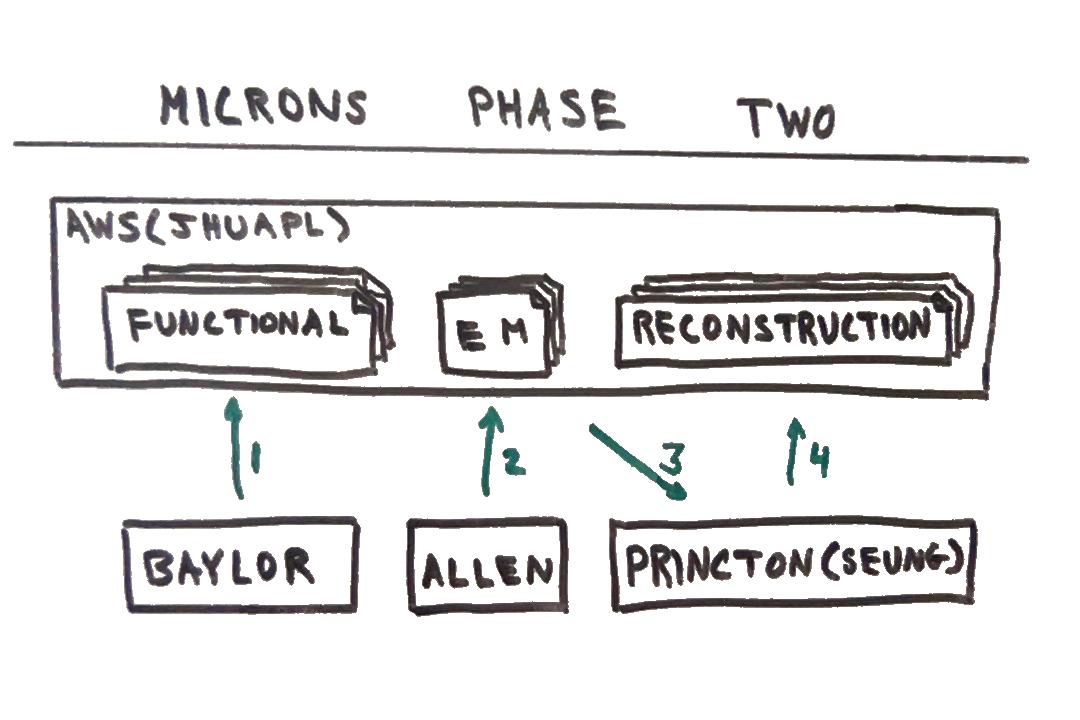 MICRONS PHASE TWO
AWS(JHUAPL)
FUNCTIONAL EM RECONSTRUCTION
1 2 3 4
BAYLOR ALLEN PRINCTON(SEUNG)